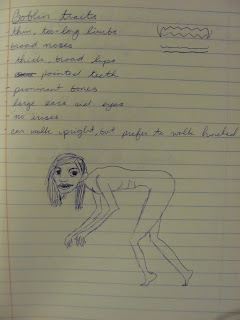 Goblin traits
- thin, too-long limbs
- broad noses
- thick, broad lips
- pointed teeth
- prominent bones
- large ears and eyes
- no irises
- can walk upright, but prefer to walk hunched